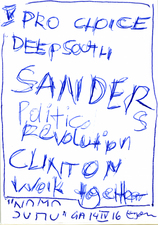 PRO CHOICE
DEEPSOUTH
SANDERS
Politica
Revolution
CLINTON
Work together
"NAMA
GA 14 IV 16